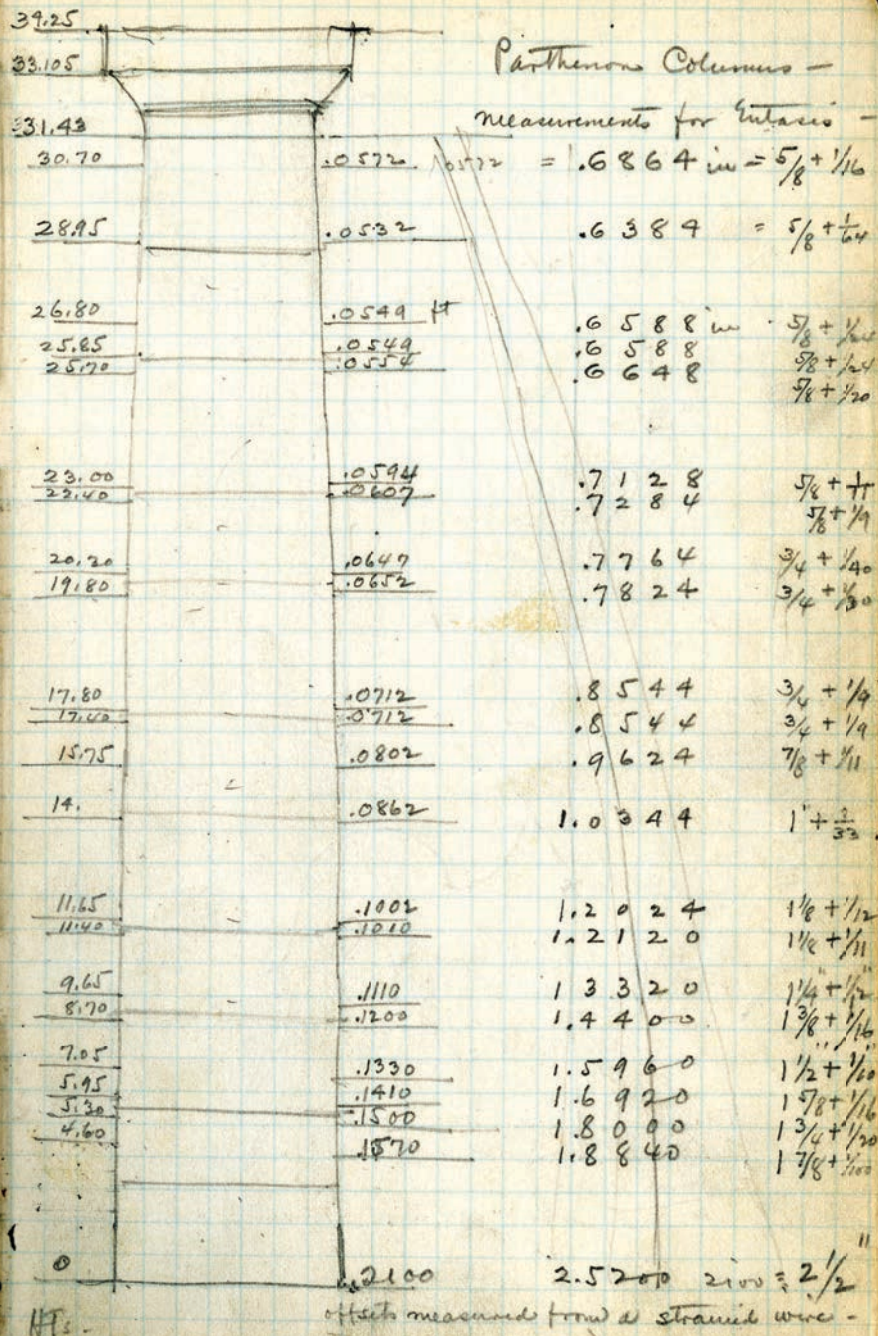 34.25
33.105 Parthenon Columns -
31.43 measurements for Entasis -
30.70 .0572 .0572 = .6864 in = 5/8 + 1/16
28.95 .0532 .6384 = 5/8 + 1/64
26.80 .0549 ft .6588 in 5/8 + 1/24
25.85 .0549 .6588 5/8 + 1/24
25.70 .0554 .6648 5/8 + 1/20
23.00 .0594 .7128 5/8 + 1/11
22.40 .0607 .7284 5/8 + 1/9
20.20 .0647 .7764 3/4 + 1/40
19.80 .0652 .7824 3/4 + 1/30
17.80 .0712 .8544 3/4 + 1/9
17.40 .0712 .8544 3/4 + 1/9
15.75 .0802 .9624 7/8 + 1/11
14. .0862 1.0344 1" + 1/33
11.65 .1002 1.2024 1 1/8 + 1/12
11.40 .1010 1.2120 1 1/8 + 1/11
9.65 .1110 1 3320 1 1/4" + 1/12"
8.70 .1200 1.4400 1 3/8 + 1/16
7.05 .1330 1.5960 1 1/2" + 1/10"
5.95 .1410 1.6920 1 5/8 + 1/16
5.30 .1500 1.8000 1 3/4 + 1/20
4.60 .1570 1.8840 1 7/8 + 1/100
0 .2100 2.5200 2100 = 2 1/2"
Hts. offsets measured from a strained wire -